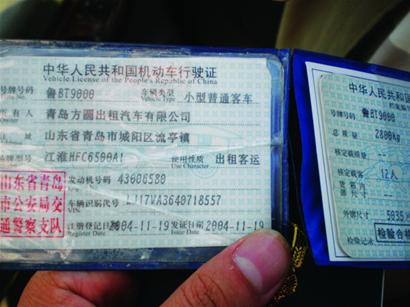 中华人民共和国机动车行驶证
Vehicle License of the People's Republic of China
号牌号码 鲁BT9000 车辆类型 小型普通客车
Vehicle Type
所有人 青岛方圆出租汽车有限公司
山东省青岛市城阳区流亭镇
江淮HFC6500A1 使用性质 出租客运
Use Character
山东省青岛
市公安局交
通警察支队
发动机号码 43006580
车辆识别代号 LJ17VA3640718557
注册登记日 2004-11-19 发证日期 2004-11-19
Register Date Issue Date
中华人民共和国机
号牌号码 鲁BT9000
总质量 2800kg
核定载质量 --
核定载客 12人
外廓尺寸 5035
检验记录 检验合格